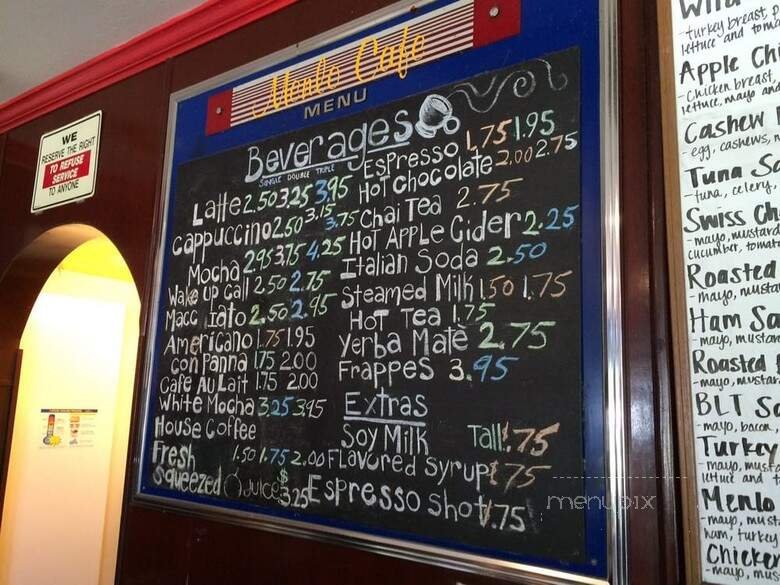 WE
RESERVE THE RIGHT
TO REFUSE
SERVICE
TO ANYONE
Menlo Cafe
MENU
Beverages
SINGLE DOUBLE TRIPLE
Latte 2.50 3.25 3.95
Cappuccino 2.60 3.15 3.75
Mocha 2.95 3.75 4.25
Wake up Call 2.50 2.75
Macc iato 2.50 2.95
Americano 1.75 1.95
con panna 1.75 2.00
Cafe Au Lait 1.75 2.00
White Mocha 3.25 3.95
House Coffee
1.50 1.75 2.00
Fresh
Squeezed Juice $3.25
Espresso 1.75 1.95
Hot Chocolate 2.00 2.75
Chai Tea 2.75
Hot Apple Cider 2.25
Italian Soda 2.50
Steamed Milk 1.50 1.75
Hot Tea 1.75
Yerba Mate 2.75
Frappes 3.95
Extras
Soy Milk Tall .75
Flavored Syrup .75
Espresso Shot .75
menupix
- turkey breast,
lettuce and
Apple
- Chicken breast,
lettuce, mayo and
Cashew
- egg, cashews,
Tuna
- tuna, celery,
Swiss
- mayo, mustard
cucumber,
Roasted
- mayo,
Ham
- mayo,
Roasted
- mayo,
BLT
- mayo, bacon,
Turkey
- mayo,
lettuce and
Menlo
- mayo,
ham, turkey
Chicken
- mayo,